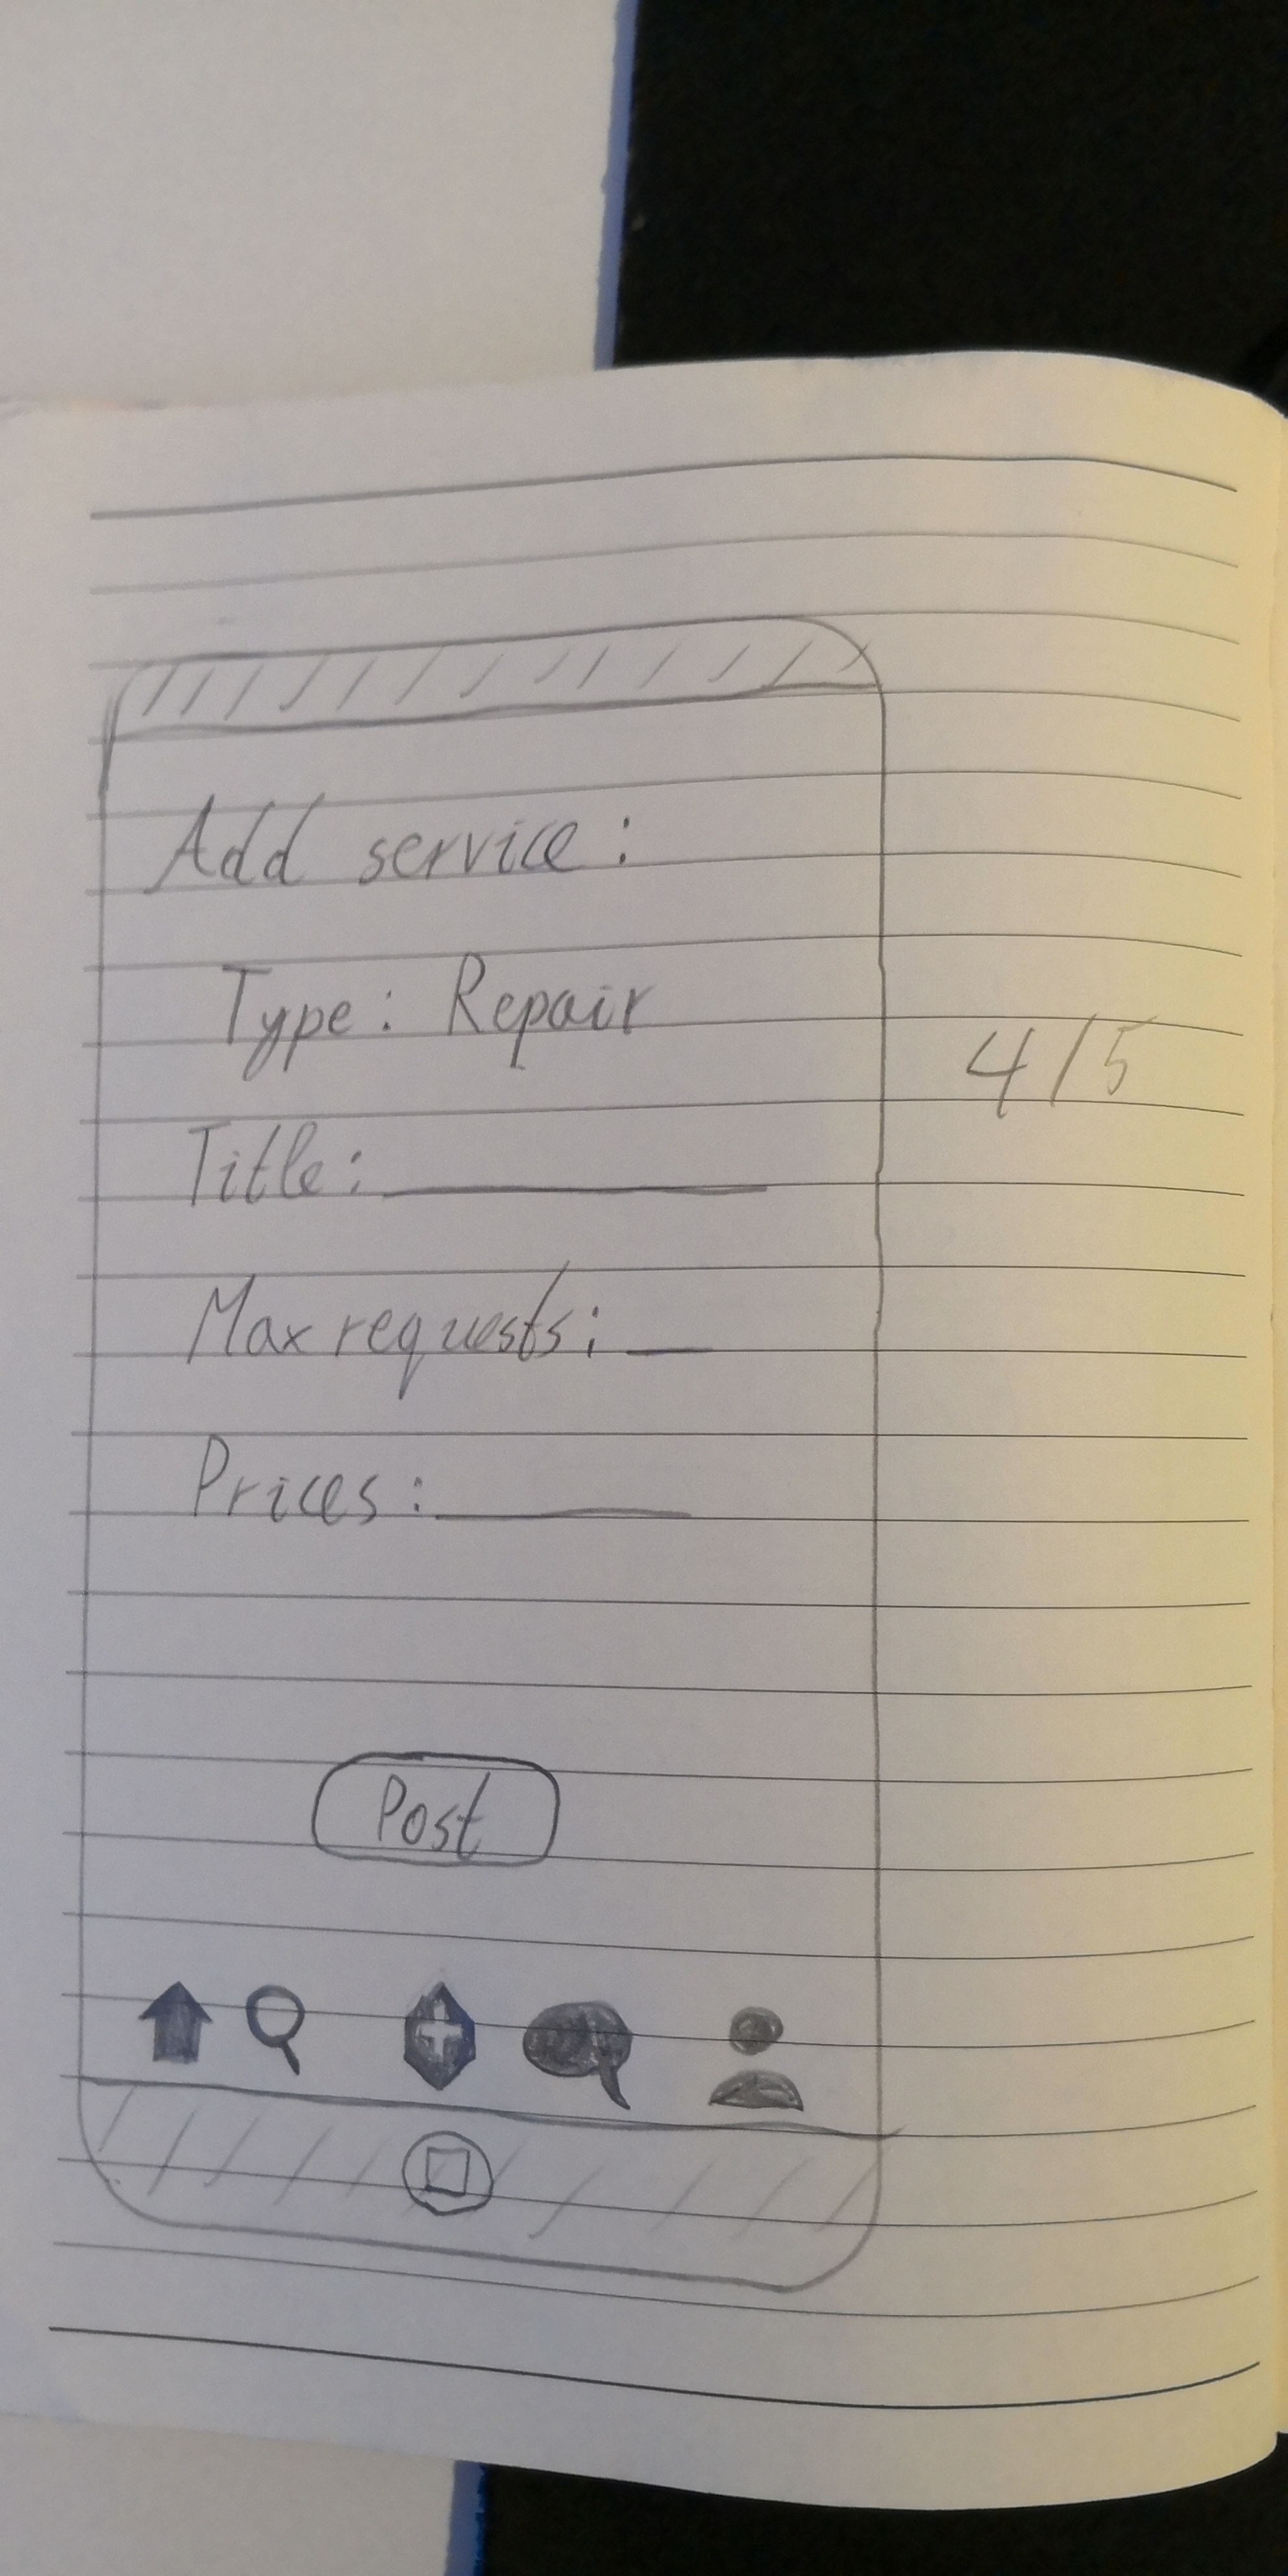 Add service:
Type: Repair
4/5
Title:
Max requests:
Prices:
Post